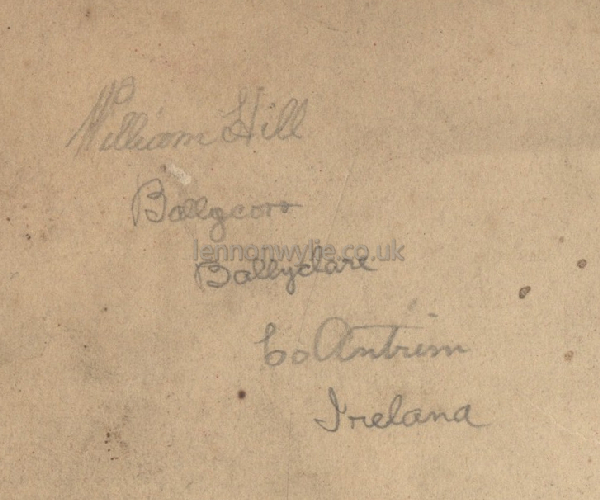 William Hill
Ballycorr
lennonwylie.co.uk
Ballyclare
Co Antrim
Ireland